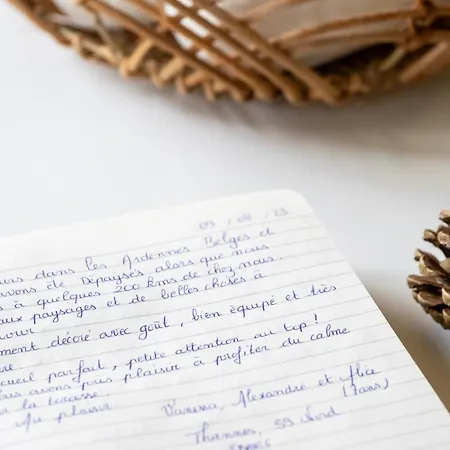 09 / 08 / 23
dans les Ardennes Belges et
avons été Dépaysés alors que nous
à quelques 200 kms de chez nous.
paysages et de belles choses à
décoré avec goût, bien équipé et très
parfait, petite attention au top!
avons pris plaisir à profiter du calme
la terrasse.
Au plaisir
Vanessa, Alexandre et Alice
(7 ans)
59 Nord